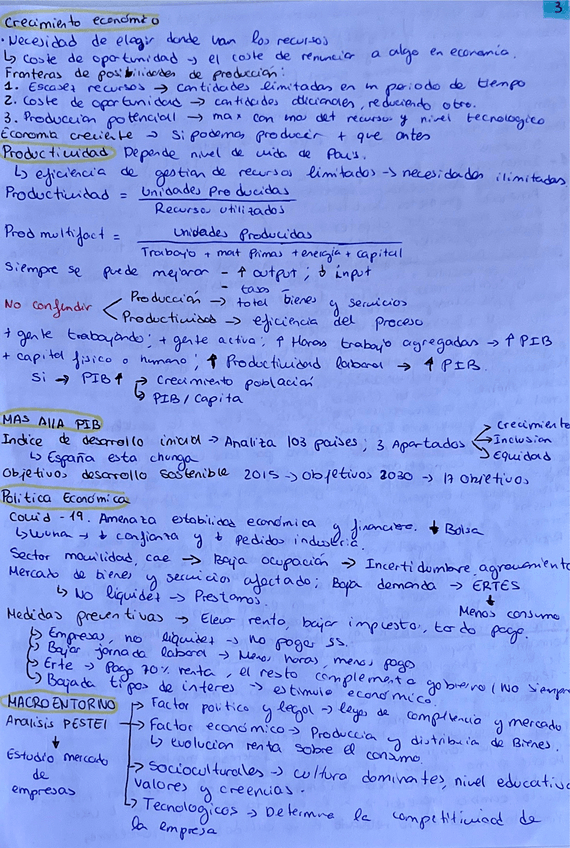 3
Crecimiento económico
· Necesidad de elegir donde van los recursos
↳ Coste de oportunidad → el coste de renunciar a algo en economía.
Fronteras de posibilidades de producción:
1. Escasez recursos → cantidades limitadas en un periodo de tiempo
2. Coste de oportunidad → cantidades adicionales, reduciendo otro.
3. Producción potencial → max con una det recurso y nivel tecnologico
Economía creciente → si podemos producir + que antes
Productividad Depende nivel de vida de País.
↳ eficiencia de gestion de recursos limitados → necesidades ilimitadas
Productividad = Unidades Producidas
Recursos utilizados
Prod multifact = Unidades Producidas
Trabajo + mat Primas + energía + capital
Siempre se puede mejorar - ↑ output ; ↓ input
- tasa
No confundir Producción → total bienes y servicios
Productividad → eficiencia del proceso
+ gente trabajando; + gente activa; ↑ Horas trabajo agregadas → ↑ PIB
+ capital físico o humano; ↑ Productividad laboral → ↑ PIB.
Si → PIB ↑ → Crecimiento población
↳ PIB / Capita
MAS AllA PIB
Indice de desarrollo inicial → Analiza 103 paises; 3 Apartados → Crecimiento
→ Inclusion
→ Equidad
↳ España esta chunga
Objetivos desarrollo Sostenible 2015 → Objetivos 2030 → 17 Objetivos
Politica Económica
Covid - 19. Amenaza estabilidad económica y financiera. ↓ Bolsa
↳ Wuha → ↓ confianza y ↓ Pedidos industria.
Sector movilidad, cae → Baja ocupación → Incertidumbre, agravamiento
Mercado de bienes y servicios afectado; Baja demanda → ERTES
↳ No liquidez → Prestamos.
↓
Menos consumo
Medidas preventivas → Elevar renta, bajar impuesto, tardo pago.
↳ Empresas, no liquidez → no pagar SS.
↳ Bajar jornada laboral → Menos horas, menos pago
↳ Erte → Pago 70% renta, el resto complementa gobierno (No siempre
↳ Bajada tipos de interes → estimulo económico.
MACROENTORNO
Analisis PESTEL
↓
Estudio mercado
de
empresas
→ Factor politico y legal → leyes de competencia y mercado
→ Factor económico → Produccia y distribuia de Bienes.
↳ evolucion renta sobre el consumo.
→ Socioculturales → cultura dominantes, nivel educativo
valores y creencias.
→ Tecnologicos → Determine la competitividad de
la empresa